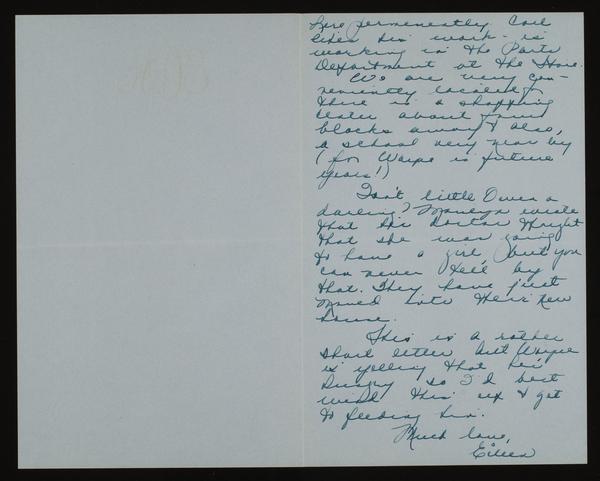 here permenently. Carl
likes his work - is
working in the Parts
Department at the Store.
We are very con-
veniently located &
there is a shopping
center about four
blocks away & also,
a school very near by
(for Wayne in future
years!)
Isn't little Owen a
darling? Marilyn wrote
that the doctor thought
that she was going
to have a girl, but you
can never tell by
that. They have just
moved into their new
house.
This is a rather
short letter but Wayne
is yelling that he's
hungry so I'd best
wind this up & get
to feeding him.
Much love,
Eileen